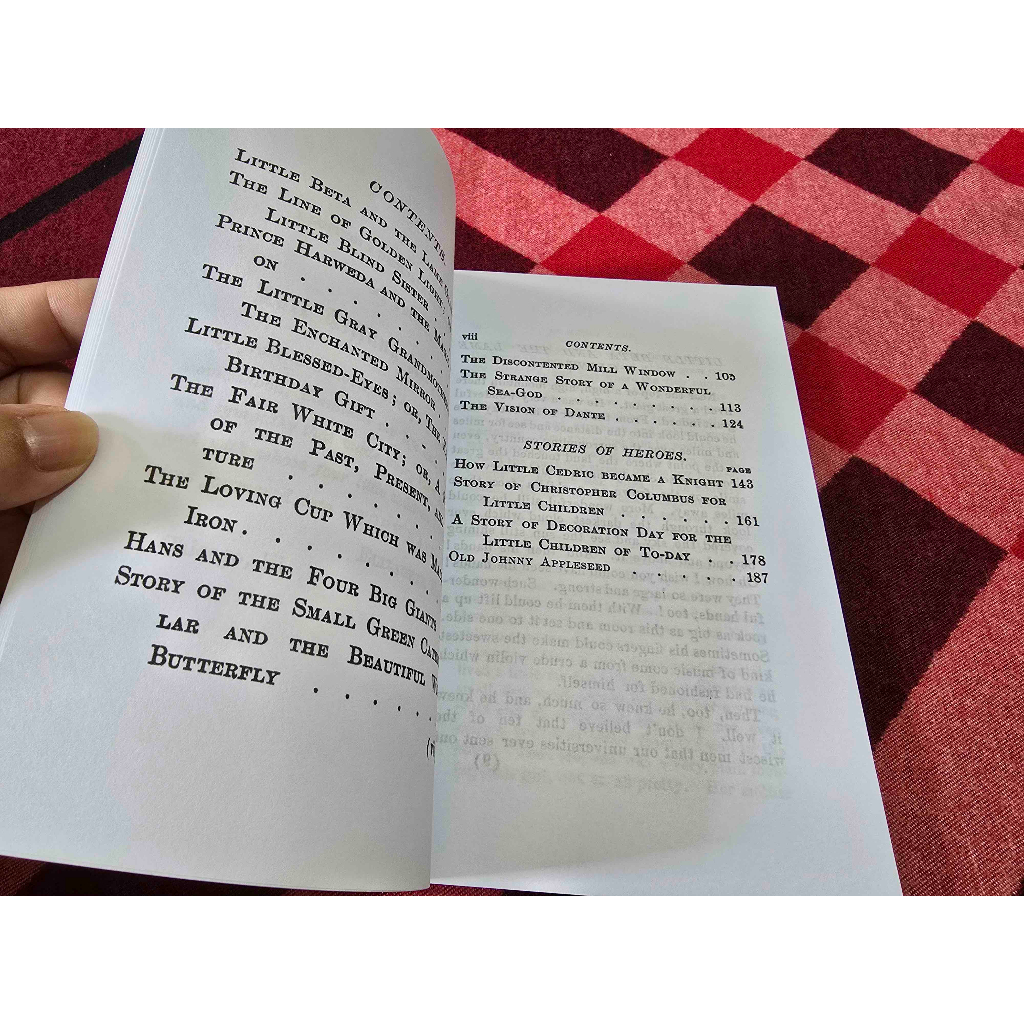 CONTENTS.
LITTLE BETA AND THE LAME
THE LINE OF GOLDEN LIGHT
LITTLE BLIND SISTER .
PRINCE HARWEDA AND THE
ON . . . .
THE LITTLE GRAY GRANDMOTHER
THE ENCHANTED MIRROR
LITTLE BLESSED-EYES; OR, THE
BIRTHDAY GIFT . . .
THE FAIR WHITE CITY; OR, A
OF THE PAST, PRESENT,
TURE . . . . .
THE LOVING CUP WHICH WAS
IRON . . . . . .
HANS AND THE FOUR BIG GIANTS
STORY OF THE SMALL GREEN
LAR AND THE BEAUTIFUL
BUTTERFLY . . . . .
viii
CONTENTS.
THE DISCONTENTED MILL WINDOW . . 105
THE STRANGE STORY OF A WONDERFUL
SEA-GOD . . . . . . . . 113
THE VISION OF DANTE . . . . . 124
STORIES OF HEROES.
PAGE
HOW LITTLE CEDRIC BECAME A KNIGHT 143
STORY OF CHRISTOPHER COLUMBUS FOR
LITTLE CHILDREN . . . . . . 161
A STORY OF DECORATION DAY FOR THE
LITTLE CHILDREN OF TO-DAY . . 178
OLD JOHNNY APPLESEED . . . . . 187